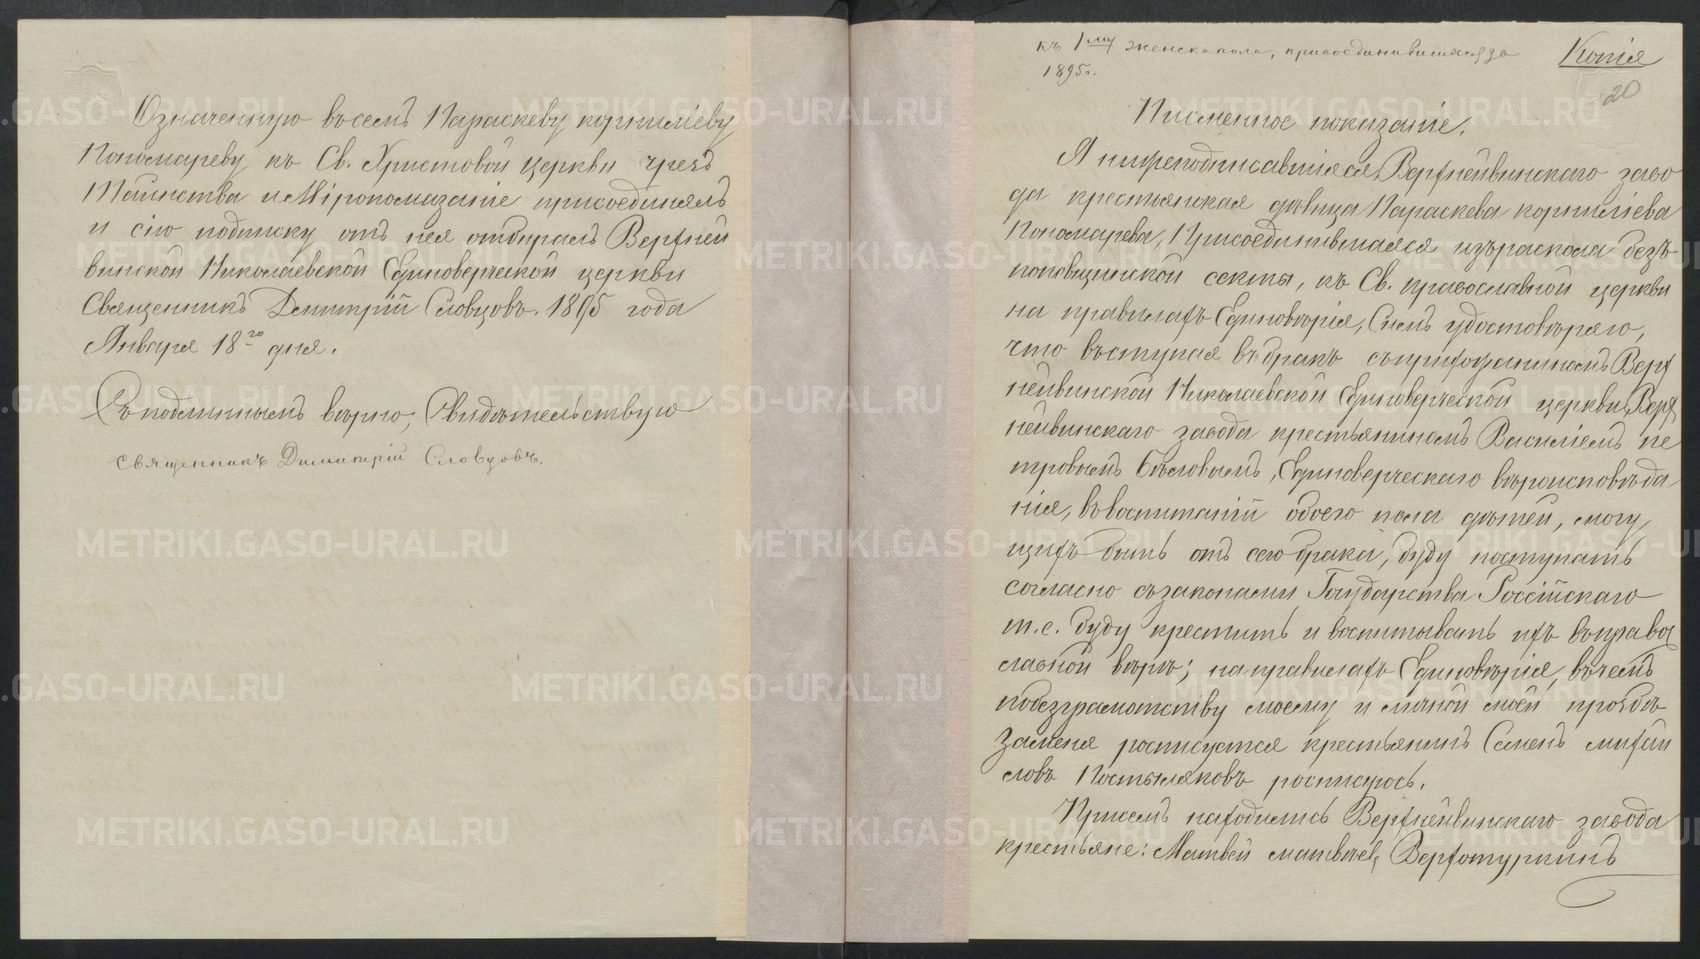 Означенную въ семъ Параскеву корниліеву
Пономареву, къ Св. Христовой церкви чрезъ
Таинства и Мѵропомазаніе присоединялъ
и сію подписку отъ нея отбиралъ Верхней
винской Николаевской Единоверческой церкви
Священникъ Димитрій Словцовъ. 1895 года
Января 18го дня.
Съ подлиннымъ вѣрно, Свидѣтельствую
священникъ Димитрій Словцовъ.
къ 1му женска пола, присоединившихся за
1895 г.
Копія
20
Писменное показаніе.
Я нижеподписавшаяся, Верхнейвинскаго заво
да крестьянская дѣвица Параскева корниліева
Пономарева, Присоединившаяся изъ раскола безъ-
поповщинской секты, къ Св. православной церкви
на правилахъ Единовѣрія, Симъ удостовѣряю,
что вступая въ бракъ съ прихожаниномъ Верх
нейвинской Николаевской Единоверческой церкви, Верх
нейвинскаго завода крестьяниномъ Василіемъ пе
тровымъ Бѣловымъ, Единоверческаго вѣроисповѣда
нія, въ воспитаніи обоего пола дѣтей, могу
щихъ быть отъ сего брака, буду поступать
согласно съ законами Государства Россійскаго
т.е. буду крестить и воспитывать ихъ въ правос
лавной вѣрѣ; на правилахъ Единовѣрія, въ чемъ
по безграмотству моему и личной моей прозбѣ
за меня росписуется крестьянинъ Семенъ михаи
ловъ Постыляковъ росписуюсь.
При семъ находились Верхнейвинскаго завода
крестьяне: Матвей матвѣевъ Верхотуркинъ
METRIKI.GASO-URAL.RU